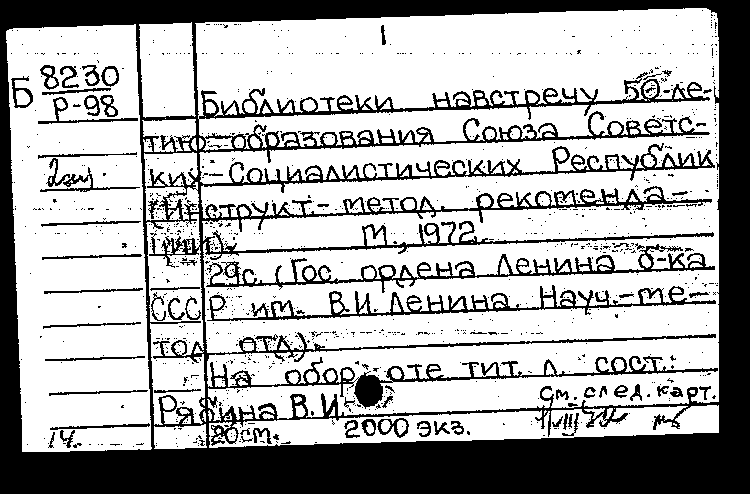 1
Б 8230
Р-98
Библиотеки навстречу 50-ле-
тию образования Союза Советс-
2 экз.
ких Социалистических Республик
(Инструкт.-метод. рекоменда-
ции). М., 1972.
29с. (Гос. ордена Ленина б-ка
СССР им. В.И. Ленина. Науч.-ме-
тод. отд.).
На обороте тит. л. сост.:
Рябина В.И.
см. след. карт.
14. 20см. 2000 экз.